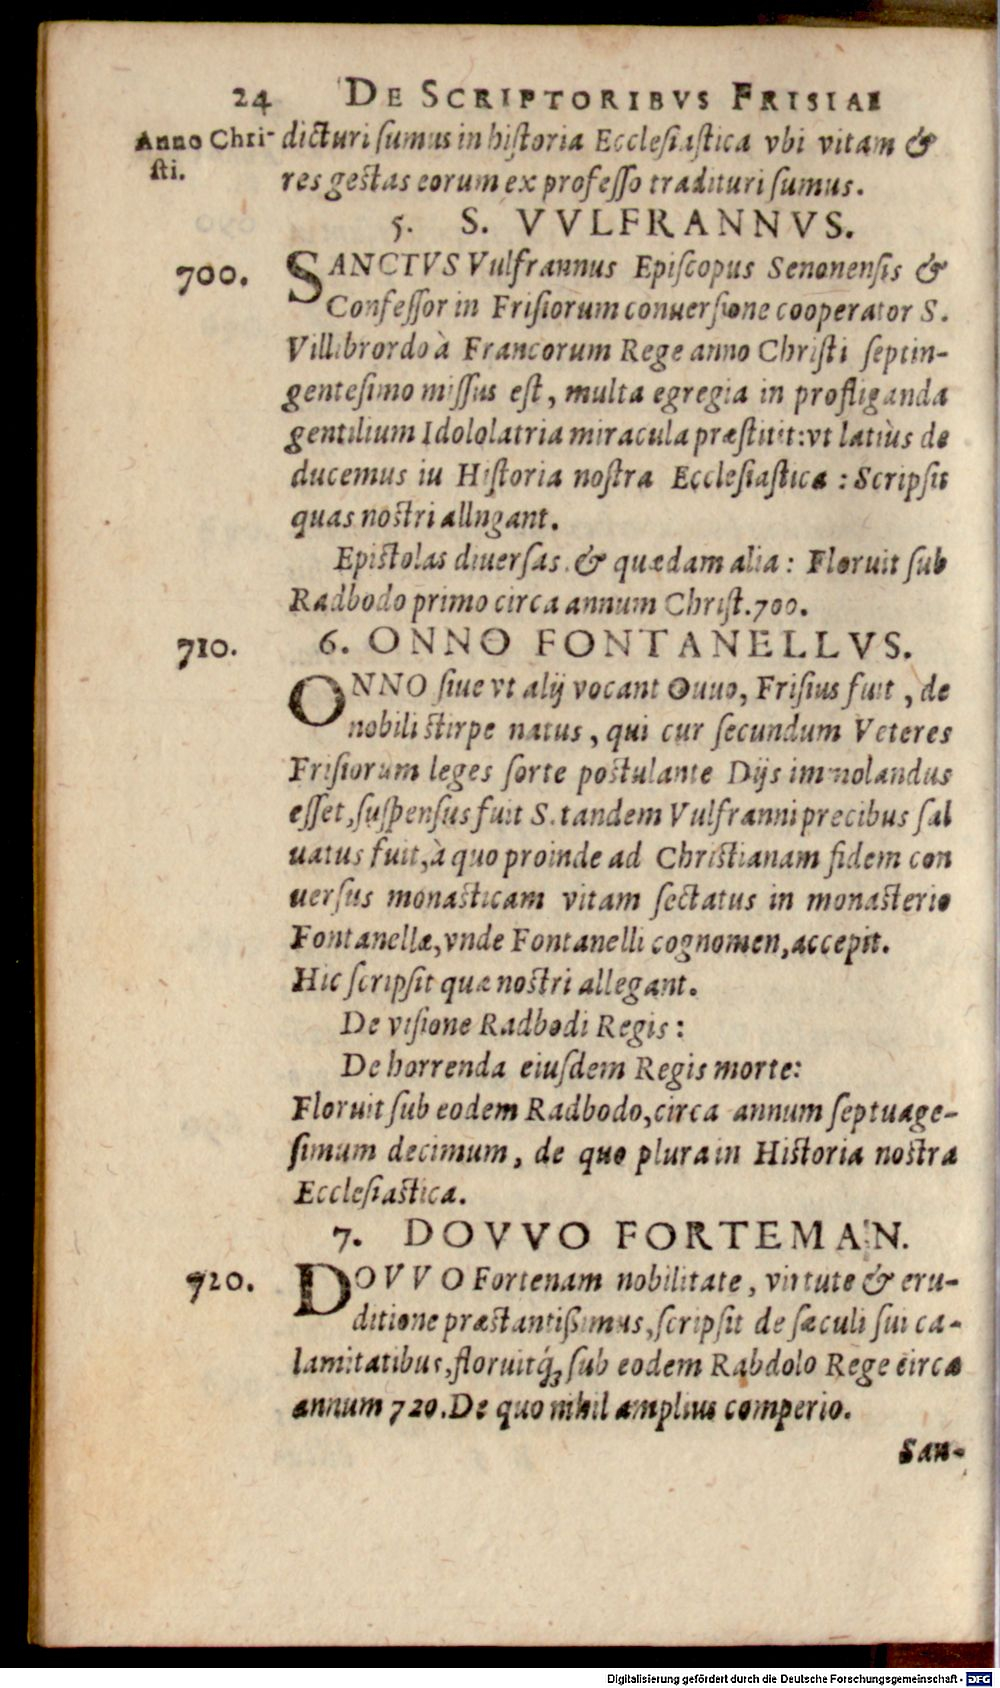 24 DE SCRIPTORIBVS FRISIAE
Anno Chri-
sti.
dicturi sumus in historia Ecclesiastica vbi vitam &
res gestas eorum ex professo tradituri sumus.
5. S. VVLFRANNVS.
700.
SANCTVS Vulfrannus Episcopus Senonensis &
Confessor in Frisiorum conuersione cooperator S.
Villibrordo à Francorum Rege anno Christi septin-
gentesimo missus est, multa egregia in profliganda
gentilium Idololatria miracula præstitit: vt latiùs de
ducemus iu Historia nostra Ecclesiastica : Scripsit
quas nostri allngant.
Epistolas diuersas. & quædam alia : Floruit sub
Radbodo primo circa annum Christ. 700.
710.
6. ONNO FONTANELLVS.
ONNO siue vt alij vocant Ouuo, Frisius fuit, de
nobili stirpe natus, qui cur secundum Veteres
Frisiorum leges sorte postulante Dijs immolandus
esset, suspensus fuit S. tandem Vulfranni precibus sal
uatus fuit, à quo proinde ad Christianam fidem con
uersus monasticam vitam sectatus in monasterio
Fontanellæ, vnde Fontanelli cognomen, accepit.
Hic scripsit quæ nostri allegant.
De visione Radbodi Regis :
De horrenda eiusdem Regis morte:
Floruit sub eodem Radbodo, circa annum septuage-
simum decimum, de quo plura in Historia nostra
Ecclesiastica.
7. DOVVO FORTEMAN.
720.
DOVVO Fortenam nobilitate, virtute & eru-
ditione præstantißimus, scripsit de sæculi sui ca-
lamitatibus, floruitq́; sub eodem Rabdolo Rege circa
annum 720. De quo nihil amplius comperio.
San-
Digitalisierung gefördert durch die Deutsche Forschungsgemeinschaft - DFG